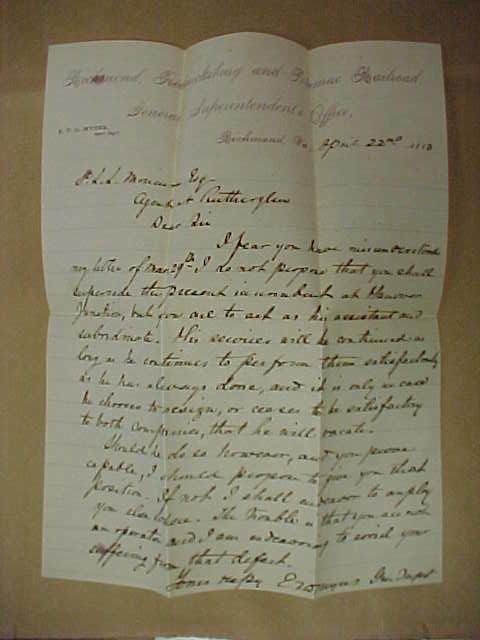 Richmond, Fredericksburg and Potomac Railroad
General Superintendent's Office,
E. T. D. MYERS,
Gen'l Sup't
Richmond Va, April 22nd
Esq
Agent at Rutherglen
Dear Sir
I fear you have misunderstood
my letter of Mar 29th I do not propose that you shall
supersede the present incumbent at Hanover
Junction, but you are to act as his assistant and
subordinate. His services will be continued as
long as he continues to perform them satisfactorily
as he has always done, and it is only in case
he chooses to resign, or ceases to be satisfactory
to both companies, that he will vacate.
Should he do so however, and you prove
capable, I should propose to give you that
position. If not I shall endeavor to employ
you elsewhere. The trouble is that you are not
an operator and I am endeavoring to avoid your
suffering from that defect.
Yours resply E T D Myers Gen Supt